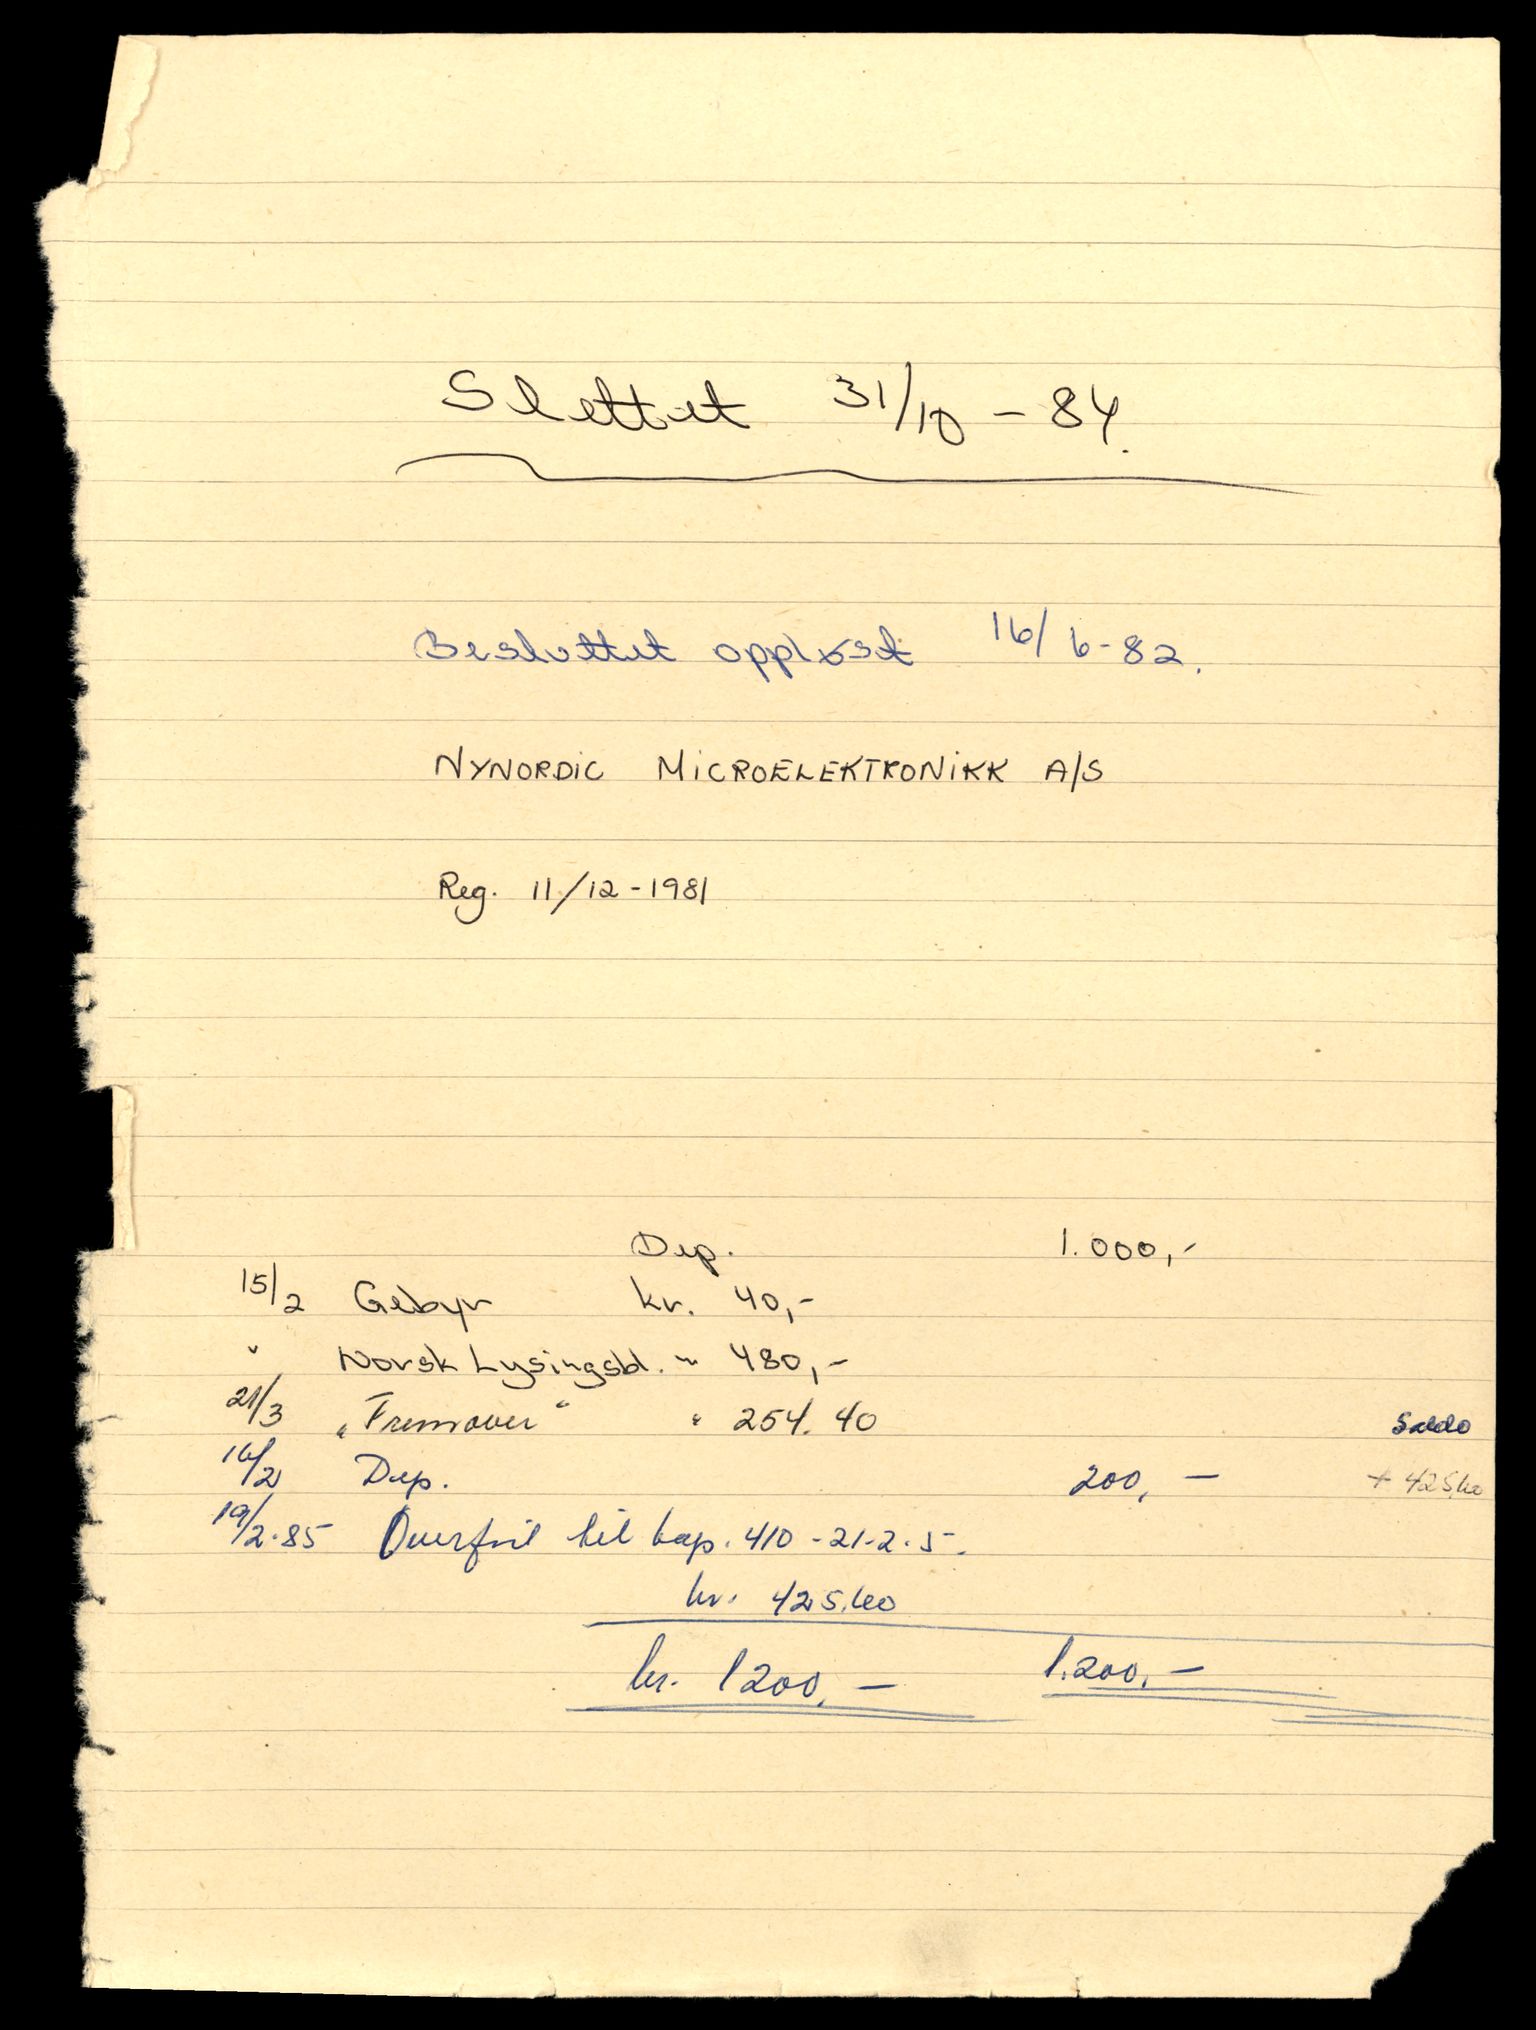 Slettet 31/10 - 84.
Besluttet oppløst 16/6-82.
NYNORDIC MICROELEKTRONIKK A/S
Reg. 11/12-1981
Dep. 1.000,-
15/2 Gebyr kr. 40,-
" Norsk Lysingsbl. " 480,-
21/3 "Fremover" " 254.40
Saldo
16/2 Dep. 200,- + 425,60
19/2-85 Overført til kap. 410-21-2.5.
kr. 425,60
kr. 1200,- 1.200,-